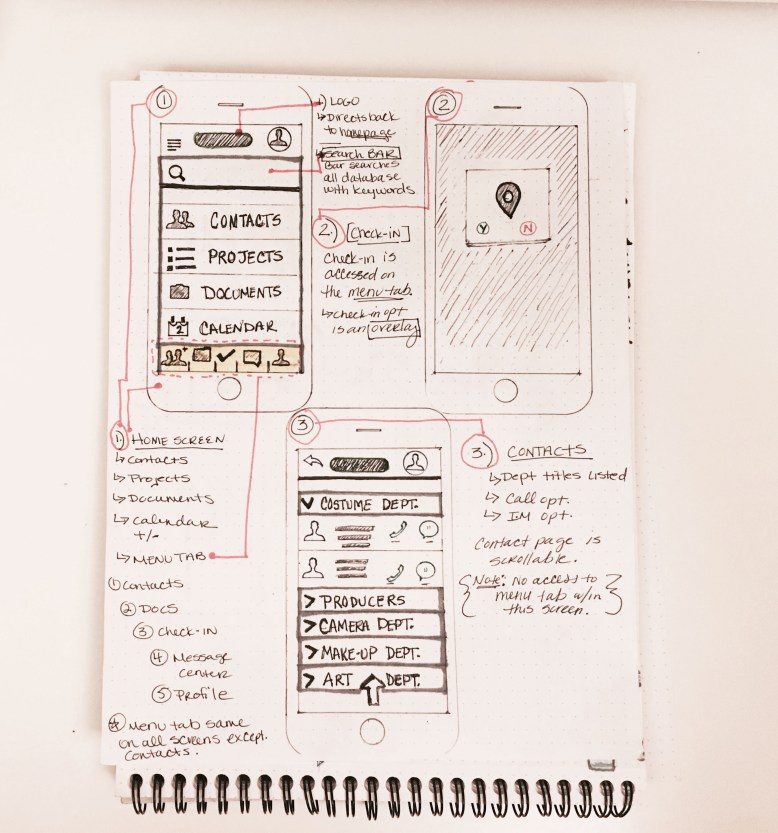 ①
1) LOGO
↳ Directs back
to homepage
↳ Search BAR
Bar searches
all database
with keywords
CONTACTS
PROJECTS
DOCUMENTS
2
CALENDAR
②
Y
N
2.) [Check-in]
Check-in is
accessed on
the menu tab.
↳ check-in opt
is an overlay
1.) HOME SCREEN
↳ Contacts
↳ Projects
↳ Documents
↳ Calendar
+/-
↳ MENU TAB
① Contacts
② DOCS
③ Check-IN
④ Message
center
⑤ Profile
Menu tab same
on all screens except.
contacts.
③
COSTUME DEPT.
> PRODUCERS
> CAMERA DEPT.
> MAKE-UP DEPT.
> ART DEPT.
3.) CONTACTS
↳ Dept titles listed
↳ Call opt.
↳ IM opt.
Contact page is
scrollable.
{Note: No access to
menu tab w/in
this screen.}